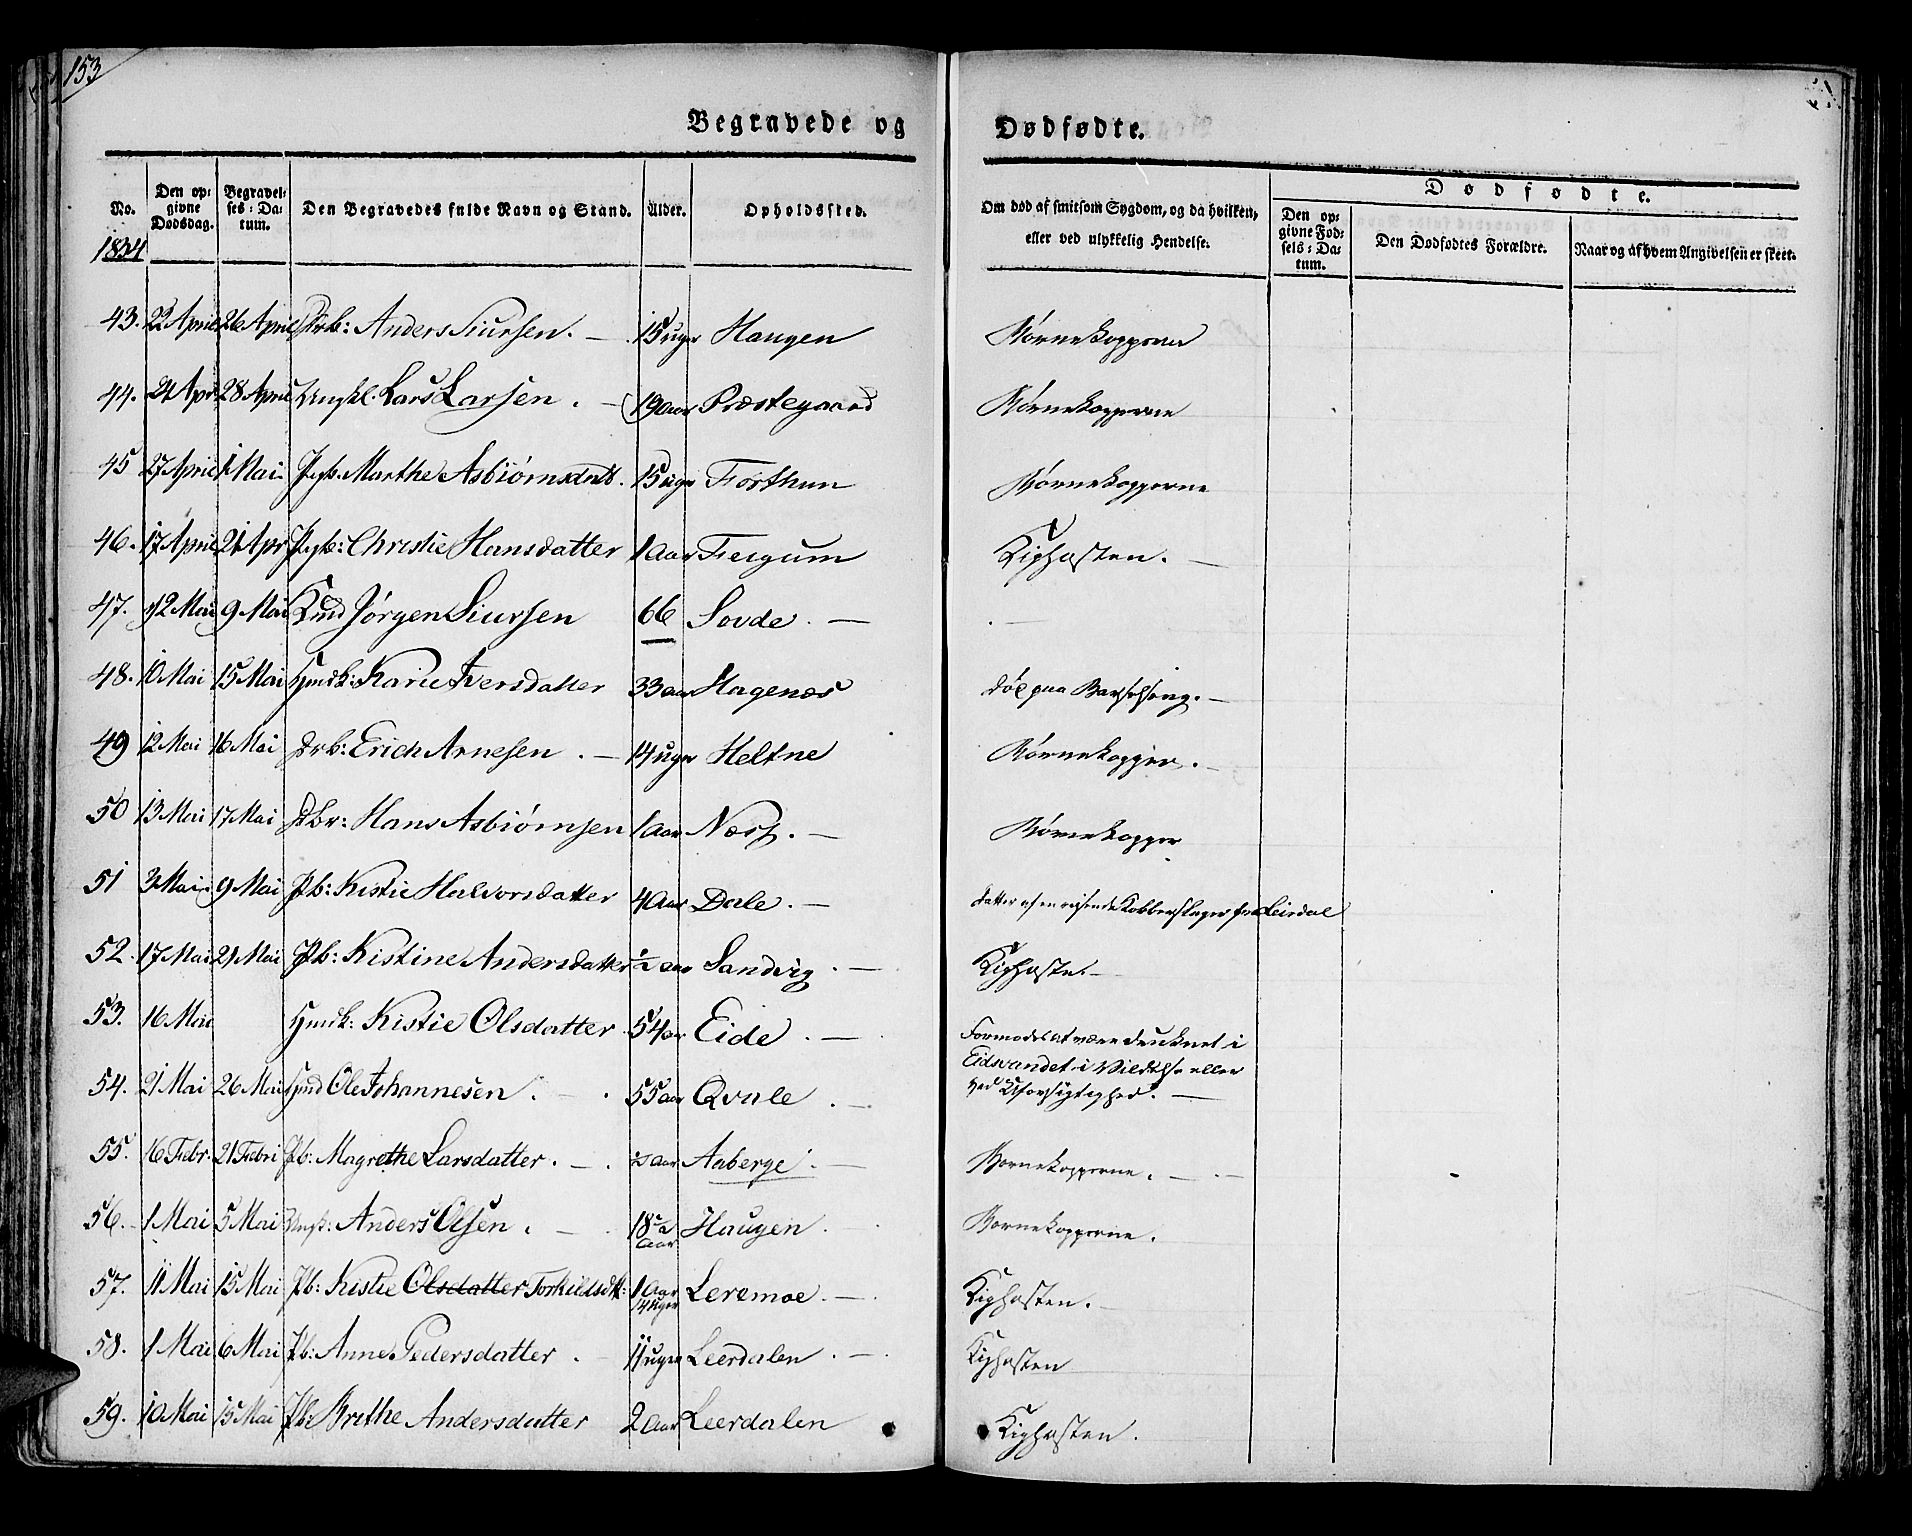 153
Begravede og Dødfødte.
No. Den opgivne Dødsdag. Begravelses-Datum. Den Begravedes fulde Navn og Stand. Alder. Opholdssted. Om død af smitsom Sygdom, og da hvilken, eller ved ulykkelig Hendelse. Dødfødte. Den opgivne Fødsels-Datum. Den Dødfødtes Forældre. Naar og af hvem Angivelsen er skeet.
1834
43. 22 April 26 April Drb: Anders Siursen. — 15 uger Haugen Børnekopperne
44. 24 Apr 28 April Ungkl. Lars Larsen. — 19 aar Præstegaard Børnekopperne
45 27 April 1 Mai Pigb. Marthe Asbiørnsdatt. 15 uger Forthun Børnekopperne
46. 17 April 21 Apr Pigb: Christie Hansdatter 1 aar Feigum Kighosten. —
47. 2 Mai 9 Mai Kmd Jørgen Siursen 66 Sovde. —
48. 10 Mai 15 Mai Hmdk: Karie Iversdatter 33 aar Hagenæs døe paa Barselseng. —
49 12 Mai 16 Mai Drb: Erich Arnesen. — 14 uger Heltne Børnekopper. —
50 13 Mai 17 Mai Dbr: Hans Asbiørnsen 1 aar Næss. — Børnekopper
51 3 Mai 9 Mai Pb: Kistie Halvorsdatter 4 aar Dale. — datter af en reisende Kobberslager fra Leirdal
52. 17 Mai 21 Mai Pb: Kistine Andersdatter ½ aar Sandvig. — Kighoste. —
53. 16 Mai Hmdk: Kistie Olsdatter 54 aar Eide. — Formodes at være druknet i
Eidsvandet i Vildelse eller
ved Uforsigtighed. —
54. 21 Mai 26 Mai Hmd Ole Johannesen. — 55 aar Qvale. —
55. 16 Febr. 21 Febri Pb: Magrethe Larsdatter. — . aar Aaberge. — Børnekopperne. —
56. 1 Mai 5 Mai Ungk: Anders Olsen. — 18 ½ aar Haugen. Børnekopperne.
57. 11 Mai 15 Mai Pb: Kistie Olsdatter Torkildsdtt: 1 aar 14 uger Leremoe. — Kighosten. —
58. 1 Mai 6 Mai Pb: Anne Pedersdatter. 11 uger Leerdalen. — Kighosten
59. 10 Mai 15 Mai Pb: Brethe Andersdatter 2 aar Leerdalen Kighosten.